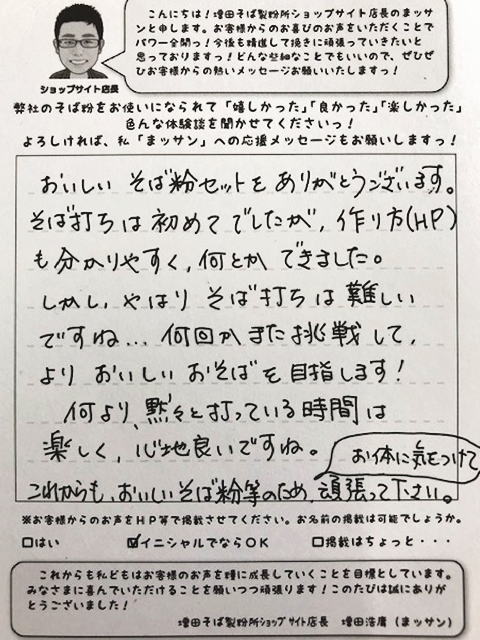 こんにちは！増田そば製粉所ショップサイト店長のまッサ
ンと申します。お客様からのお喜びのお声をいただくことで
パワー全開っ！今後も精進して挽きに頑張っていきたいと
思っておりますっ！どんな些細なことでもいいので、ぜひぜ
ひお客様からの熱いメッセージお願いいたしますっ！
ショップサイト店長
弊社のそば粉をお使いになられて「嬉しかった」「良かった」「楽しかった」
色んな体験談を聞かせてくださいっ！
よろしければ、私「まッサン」への応援メッセージもお願いしますっ！
おいしい そば粉セットを ありがとうございます。
そば打ちは 初めて でしたが、作り方(HP)
も 分かりやすく、何とか できました。
しかし、やはり そば打ちは 難しい
ですね… 何回か また 挑戦 して、
より おいしい おそばを 目指します！
何より、黙々と打っている時間は
楽しく、心地良いですね。
お体に気をつけて
これからも、おいしいそば粉等のため、頑張って下さい。
※お客様からのお声をHP等で掲載させてください。お名前の掲載は可能でしょうか。
□はい ☑イニシャルでならOK □掲載はちょっと・・・
これからも私どもはお客様のお声を糧に成長していくことを目標としています。
みなさまに喜んでいただけることを願いつつ頑張ります！このたびは誠にありが
とうございました！
増田そば製粉所ショップサイト店長 増田浩庸（まッサン）